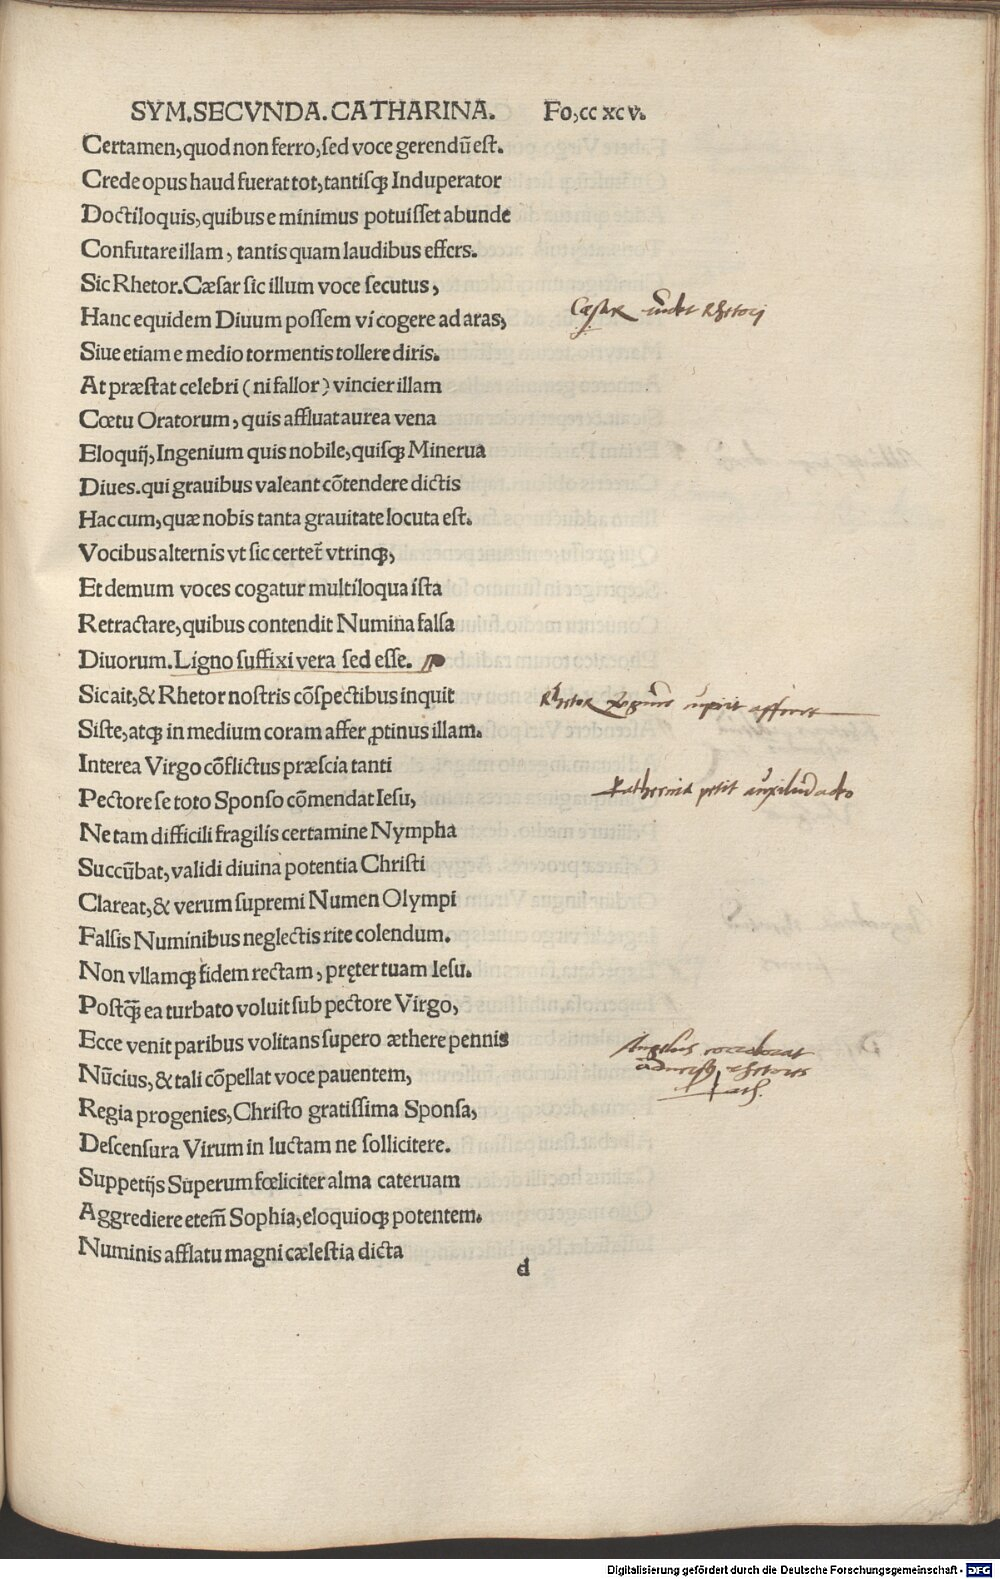 SYM.SECVNDA.CATHARINA. Fo,cc xc v.
Certamen, quod non ferro, sed voce gerendū est.
Crede opus haud fuerat tot, tantisqꝫ Induperator
Doctiloquis, quibus e minimus potuisset abunde
Confutare illam, tantis quam laudibus effers.
Sic Rhetor. Cæsar sic illum voce secutus,
Hanc equidem Diuum possem vi cogere ad aras,
Siue etiam e medio tormentis tollere diris.
At præstat celebri (ni fallor) vincier illam
Cœtu Oratorum, quis affluat aurea vena
Eloquij, Ingenium quis nobile, quisqꝫ Minerua
Diues. qui grauibus valeant cōtendere dictis
Hac cum, quæ nobis tanta grauitate locuta est.
Vocibus alternis vt sic certet̄ vtrinqꝫ,
Et demum voces cogatur multiloqua ista
Retractare, quibus contendit Numina falsa
Diuorum. Ligno suffixi vera sed esse.
Sic ait, & Rhetor nostris cōspectibus inquit
Siste, atqꝫ in medium coram affer ꝓtinus illam.
Interea Virgo cōflictus præscia tanti
Pectore se toto Sponso cōmendat Iesu,
Ne tam difficili fragilis certamine Nympha
Succūbat, validi diuina potentia Christi
Clareat, & verum supremi Numen Olympi
Falsis Numinibus neglectis rite colendum.
Non vllamqꝫ fidem rectam, pręter tuam Iesu.
Postqꝫ̄ ea turbato voluit sub pectore Virgo,
Ecce venit paribus volitans supero æthere pennis
Nūcius, & tali cōpellat voce pauentem,
Regia progenies, Christo gratissima Sponsa,
Descensura Virum in luctam ne sollicitere.
Suppetijs Superum fœliciter alma cateruam
Aggrediere etem̄ Sophia, eloquioqꝫ potentem.
Numinis afflatu magni cælestia dicta
d
Cæsar rhetori
Rhetor affirret
Katherina petit auxiliū a deo
Angelus corroborat
rhetores
kath.
Digitalisierung gefördert durch die Deutsche Forschungsgemeinschaft - DFG